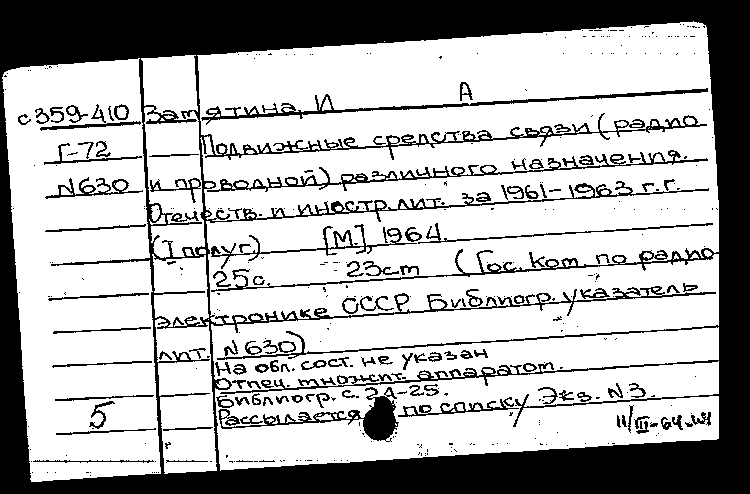 А
с359-410 Замятина, И
Г-72 Подвижные средства связи (радио
N630 и проводной) различного назначения.
Отечеств. и иностр. лит. за 1961-1963 г.г.
(I полуг.) [М.], 1964.
25с. 23cm (Гос. Ком. по радио
электронике СССР. Библиогр. указатель
лит. N630)
На обл. сост. не указан
Отпеч. множит. аппаратом.
Библиогр. с. 24-25.
5 Рассылается по списку Экз. N3.
11/III-64